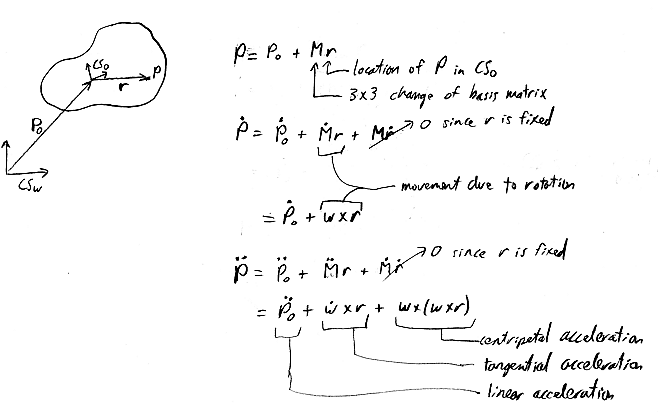 CS₀
P
r
P₀
CSw
P = P₀ + Mr
location of P in CS₀
3x3 change of basis matrix
Ṗ = Ṗ₀ + Ṁr + Mṙ → 0 since r is fixed
movement due to rotation
= Ṗ₀ + w x r
P̈ = P̈₀ + M̈r + Ṁṙ → 0 since r is fixed
= P̈₀ + ẇ x r + w x (w x r)
centripetal acceleration
tangential acceleration
linear acceleration